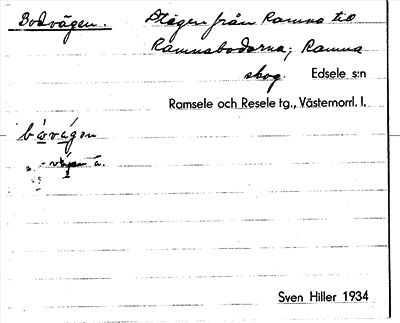 Bodvägen. Vägen från Ramna til
Ramnabodarna; Ramna
skog. Edsele s:n
Ramsele och Resele tg., Västernorrl. l.
bòvä̀gen
Sven Hiller 1934